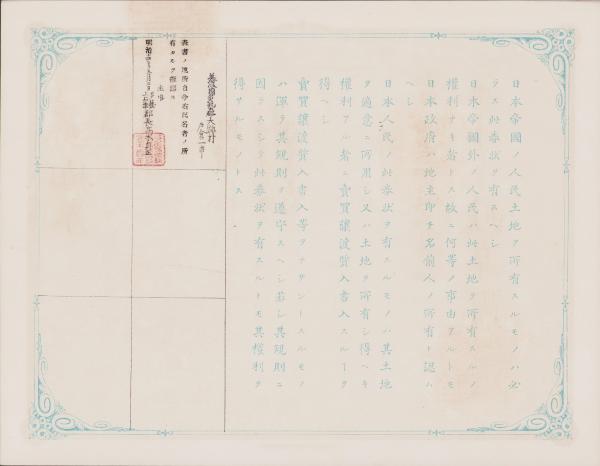 日本帝國ノ人民土地ヲ所有スルモノハ必
ラス此券状ヲ有スヘシ
日本帝國外ノ人民ハ此土地ヲ所有スルノ
權利ナキ者トス故ニ何等ノ事由アルトモ
日本政府ハ地主即チ名前人ノ所有ト認ム
ヘシ
日本人民ノ此券状ヲ有スルモノハ其土地
ヲ適意ニ所用シ又ハ土地ヲ所有シ得ヘキ
權利アル者ニ賣買讓渡質入書入スルヿヲ
得ヘシ
賣買讓渡質入書入等ヲナサントスルモノ
ハ渾テ其規則ヲ遵守スヘシ若シ其規則ニ
因ラスシテ此券状ヲ有スルトモ其權利ヲ
得サルモノトス
村
表書ノ地所自今右記名者ノ所
有タルヲ確認ス
明治 郡長